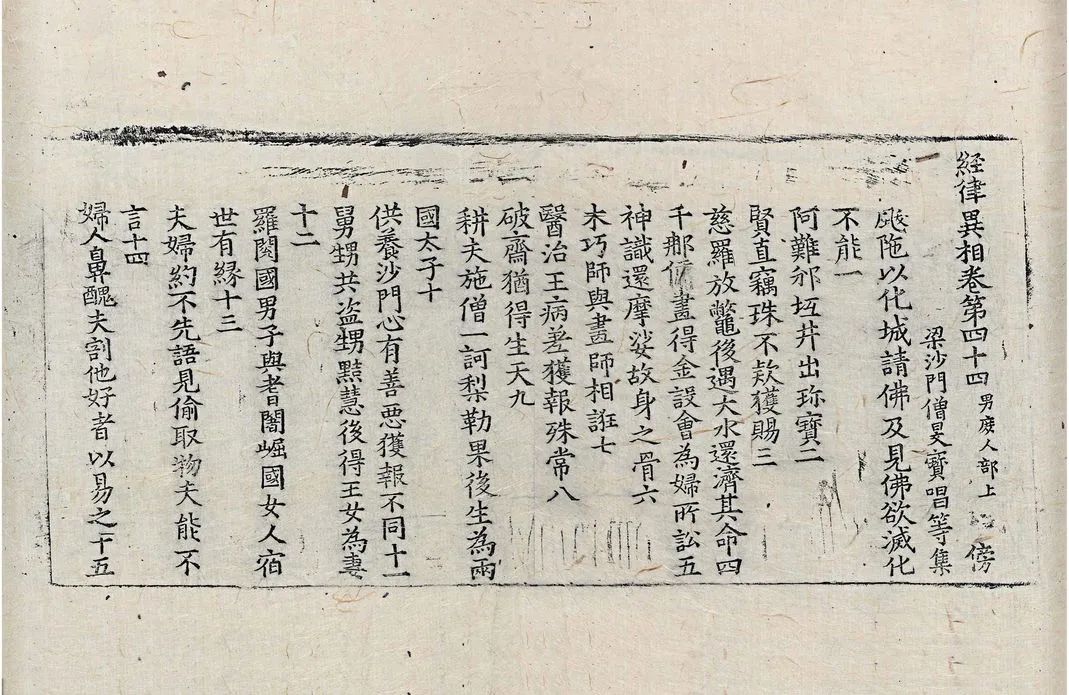 経律異相卷第四十四 男庶人部上 傍
梁沙門僧旻寳唱等集
颰陁以化城請佛及見佛欲滅化
不能一
阿難邠坻井出珎寳二
賢直竊珠不欵獲賜三
慈羅放鱉後遇大水還濟其命四
千那傭畫得金設會為婦所訟五
神識還摩娑故身之骨六
木巧師與畫師相誑七
醫治王病差獲報殊常八
破齋猶得生天九
耕夫施僧一訶梨勒果後生為兩
國太子十
供養沙門心有善惡獲報不同十一
舅甥共盜甥黠慧後得王女為妻
十二
羅閱國男子與耆闍崛國女人宿
世有縁十三
夫婦約不先語見偷取物夫能不
言十四
婦人鼻醜夫割他好者以易之十五